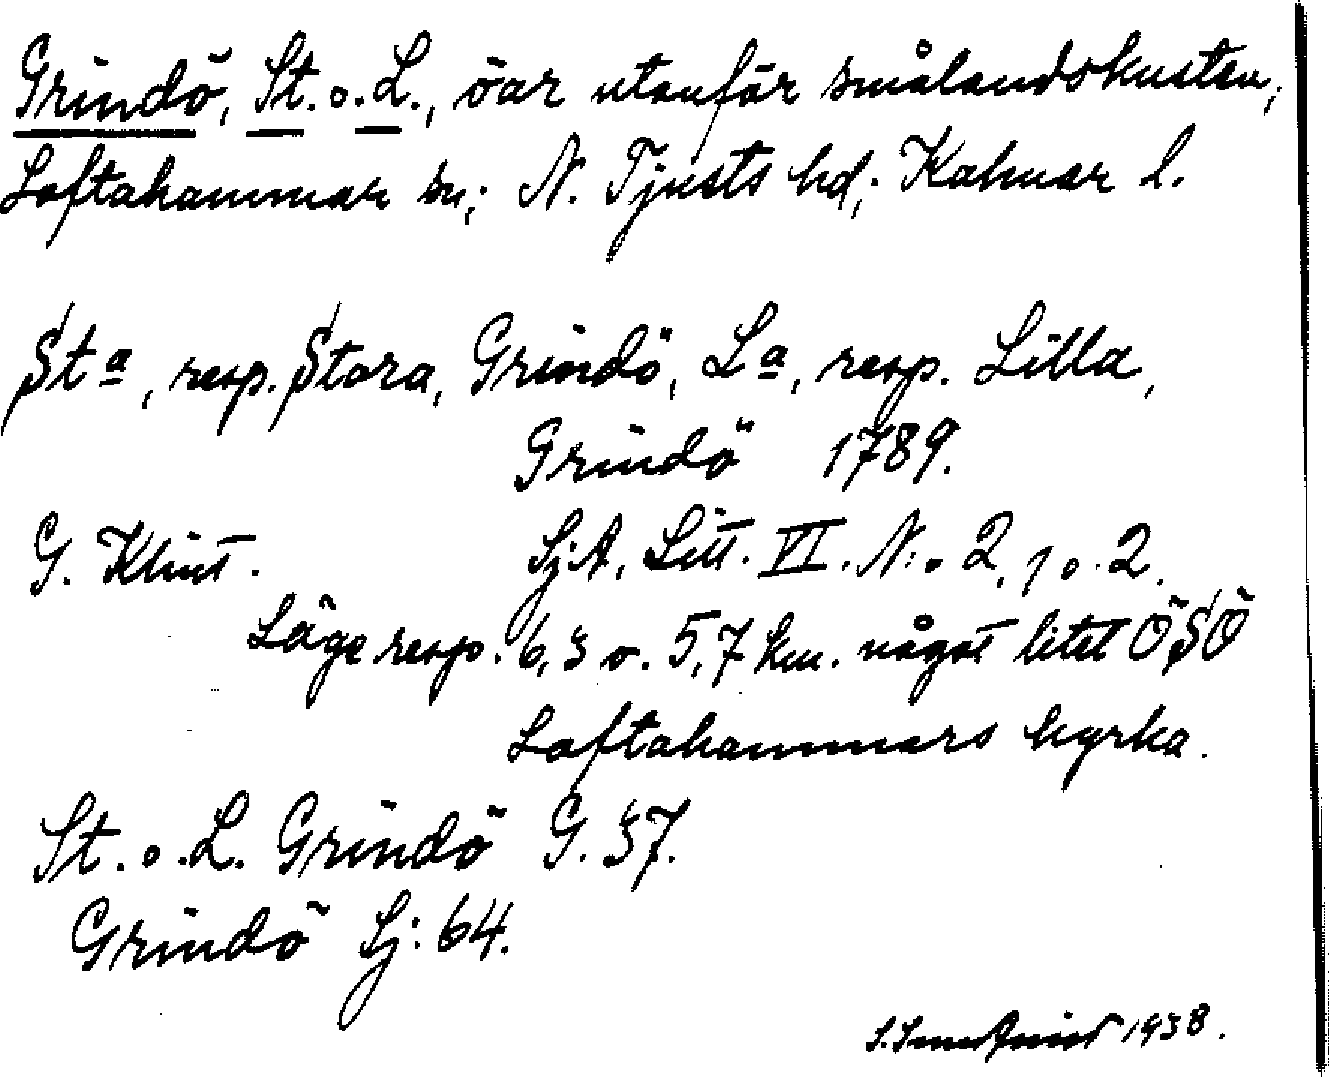 Grindö, St. o. L., öar utanför smålandskusten,
Loftahammar sn; N. Tjusts hd; Kalmar l.
Stª, resp. Stora, Grindö, Lª, resp. Lilla,
Grindö 1789.
G. Klint. Sj.A. Litt. VI. N:o 2, 1 o. 2.
Läge resp. 6,3 o. 5,7 km. något litet ÖSÖ
Loftahammars kyrka.
St. o. L. Grindö G. 37.
Grindö Sj: 64.
1938.